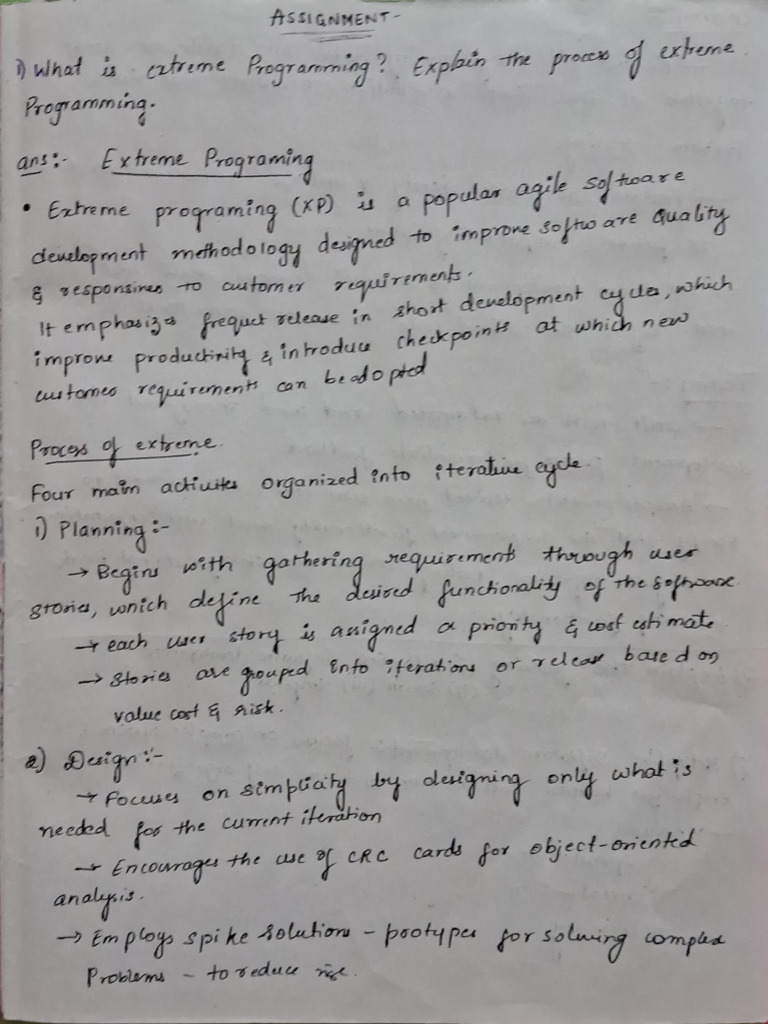 ASSIGNMENT-
1) What is extreme Programming? Explain the process of extreme
Programming.
ans:- Extreme Programing
• Extreme programing (XP) is a popular agile software
development methodology designed to improve software quality
& responsines to customer requirements.
It emphasizes frequet release in short development cycles, which
improve productivity & introduce checkpoints at which new
customes requirements can be adopted
Process of extreme.
Four main activites organized into iterative cycle.
i) Planning:-
→ Begins with gathering requirements through user
stories, which define the desired functionality of the software
→ each user story is assigned a priority & cost estimate
→ Stories are grouped into iterations or release based on
value cost & risk.
2) Design:-
→ Focuses on simplicity by designing only what is
needed for the current iteration
→ Encourages the use of CRC cards for object-oriented
analysis.
→ Employs spike solutions - prototypes for solving complex
Problems - to reduce